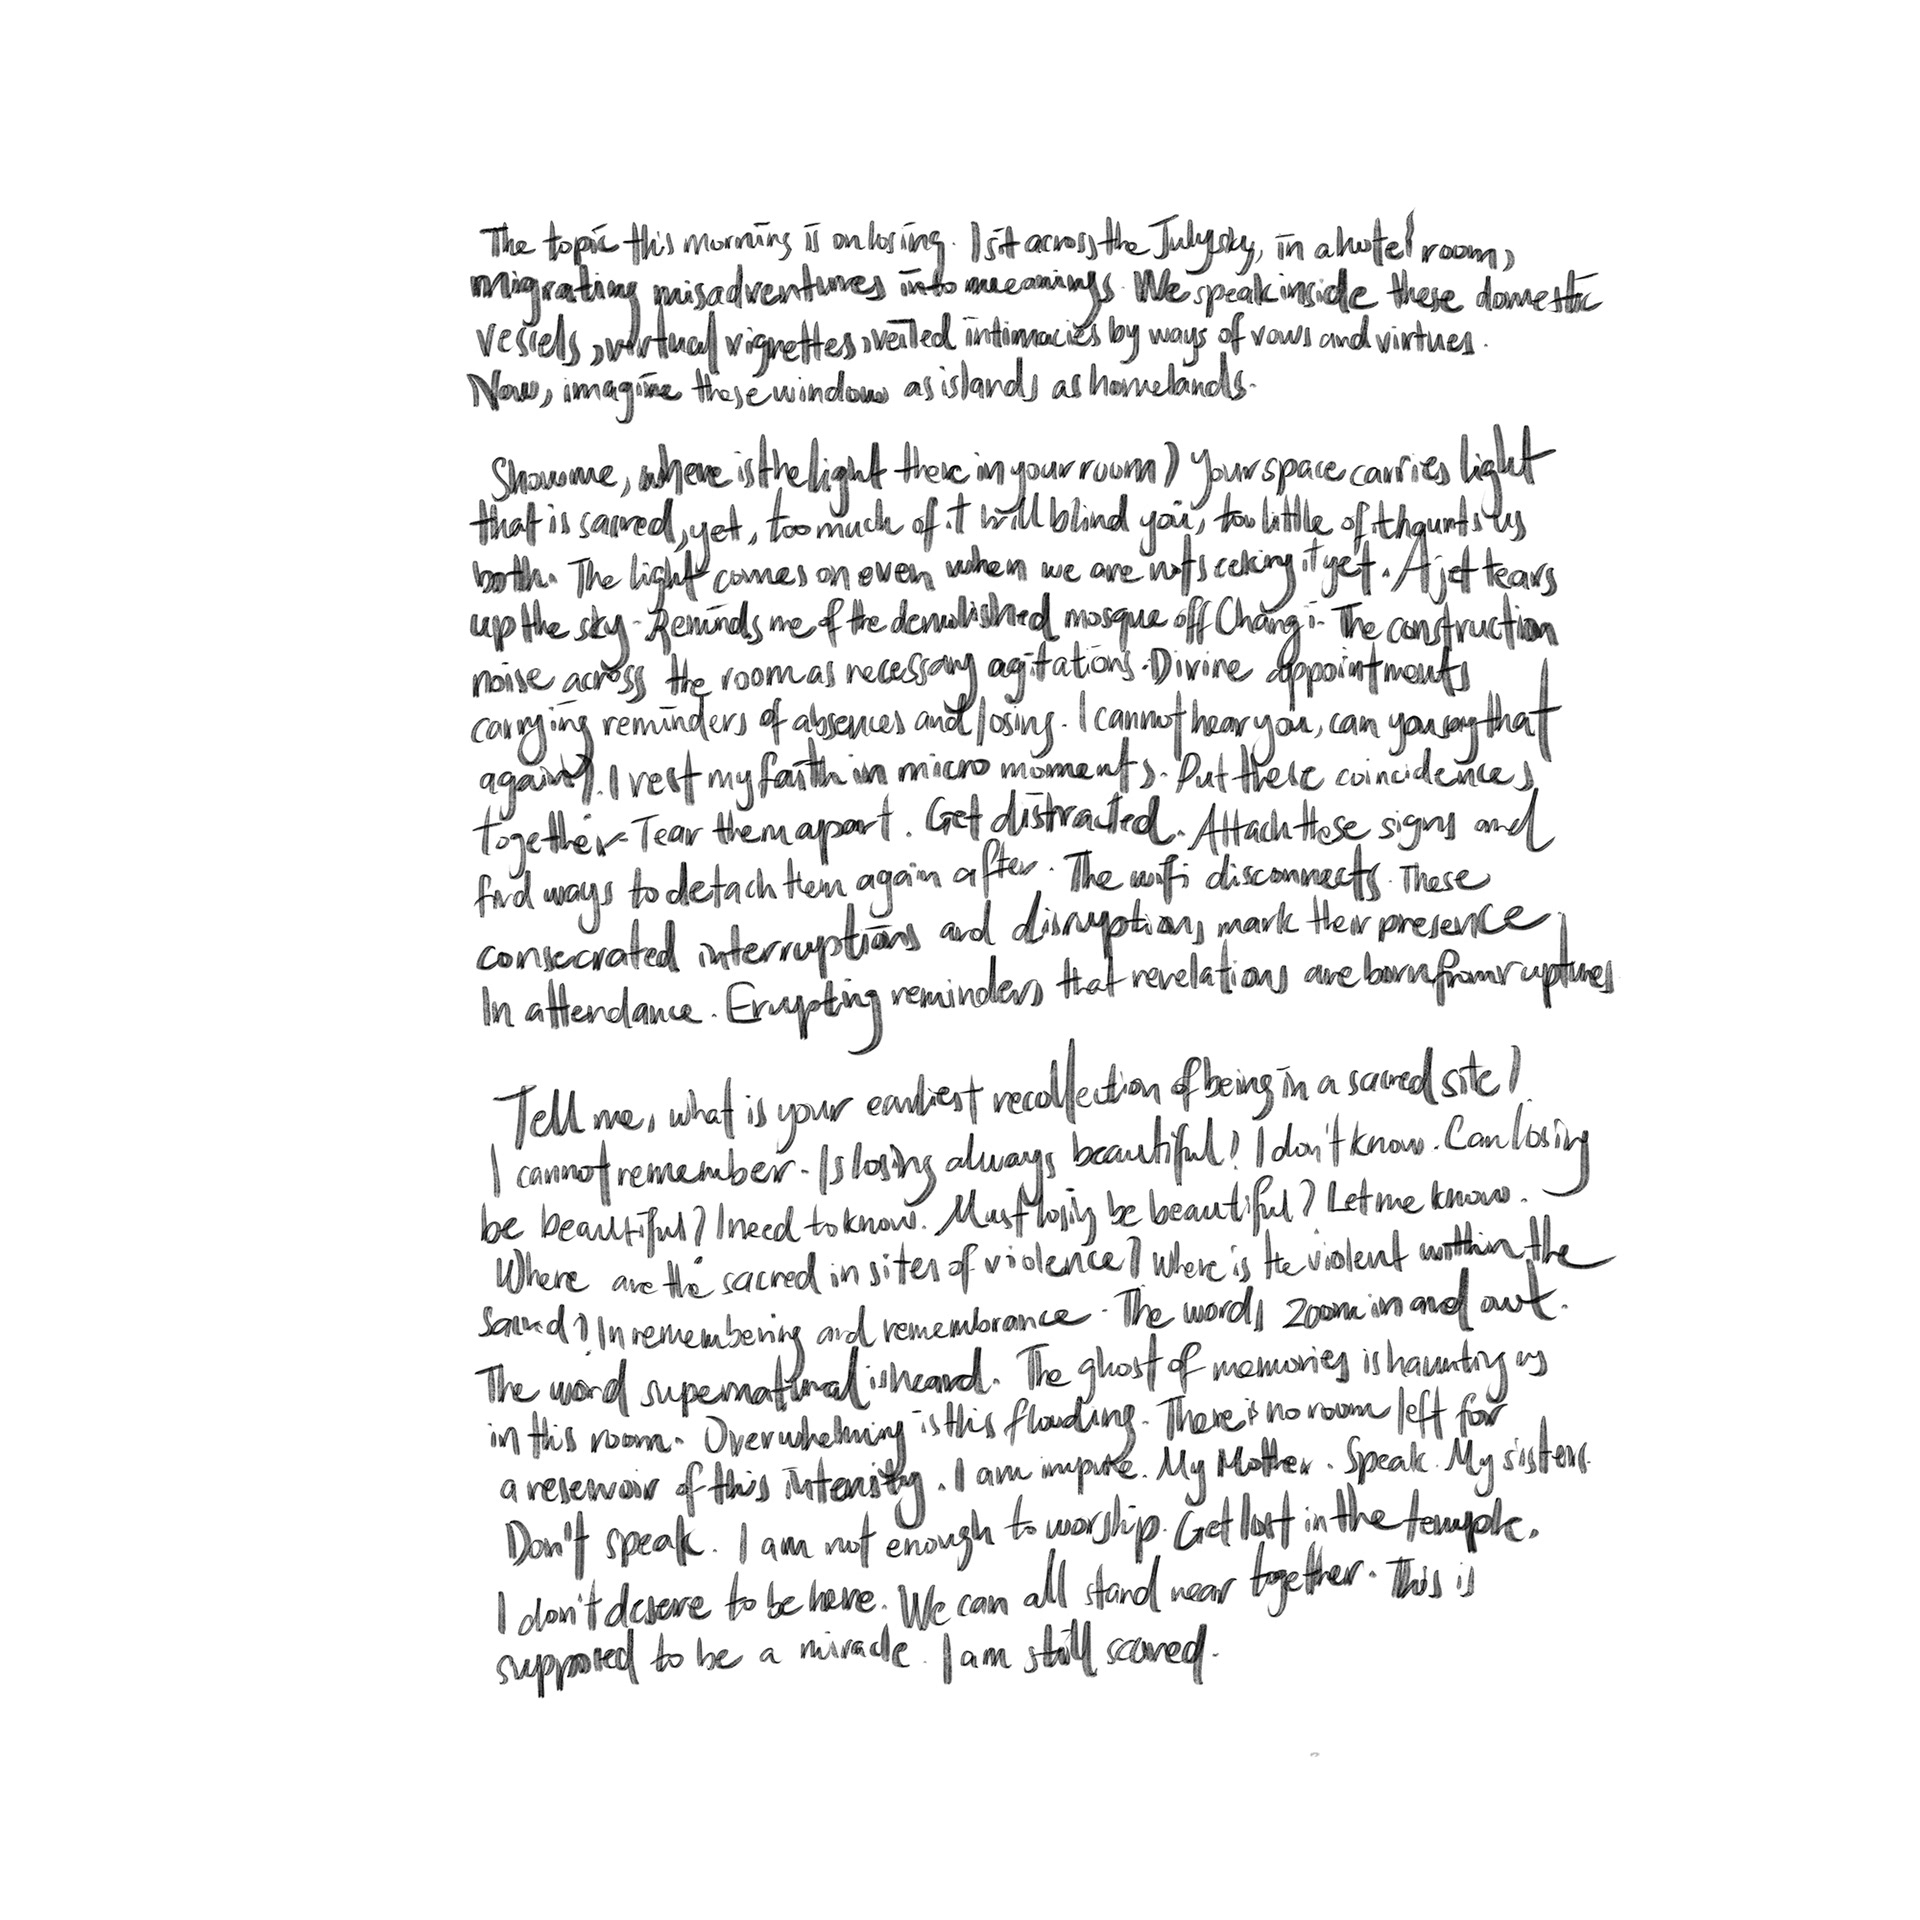 The topic this morning is on losing. I sit across the July sky, in a hotel room,
migrating misadventures into meanings. We speak inside these domestic
vessels, virtual vignettes, veiled intimacies by ways of vows and virtues.
Now, imagine these windows as islands as homelands.
Show me, where is the light there in your room? Your space carries light
that is sacred, yet, too much of it will blind you, too little of it haunts us
both. The light comes on even when we are not seeking it yet. A jet tears
up the sky. Reminds me of the demolished mosque off Changi. The construction
noise across the room as necessary agitations. Divine appointments
carrying reminders of absences and losing. I cannot hear you, can you say that
again?. I rest my faith in micro moments. Put these coincidences
together. Tear them apart. Get distracted. Attach these signs and
find ways to detach them again after. The wifi disconnects. These
consecrated interruptions and disruptions mark their presence.
In attendance. Erupting reminders that revelations are born from ruptures
Tell me, what is your earliest recollection of being in a sacred site?
I cannot remember. Is losing always beautiful? I don't know. Can losing
be beautiful? I need to know. Must losing be beautiful? Let me know.
Where are the sacred in sites of violence? Where is the violent within the
sacred? In remembering and remembrance. The words zoom in and out.
The word supernatural is heard. The ghost of memories is haunting us
in this room. Overwhelming is this flooding. There is no room left for
a reservoir of this intensity. I am impure. My Mother. Speak. My sisters.
Don't speak. I am not enough to worship. Get lost in the temple.
I don't deserve to be here. We can all stand near together. This is
supposed to be a miracle. I am still scared.